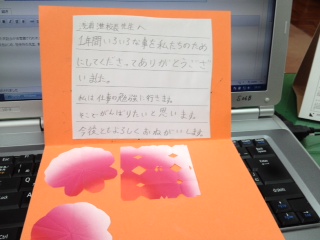 1年間いろいろな事を私たちのため
にしてくださってありがとうござ
いました。
私は仕事の
そこでがんばりたいと思います
今後ともよろしくおねがいします